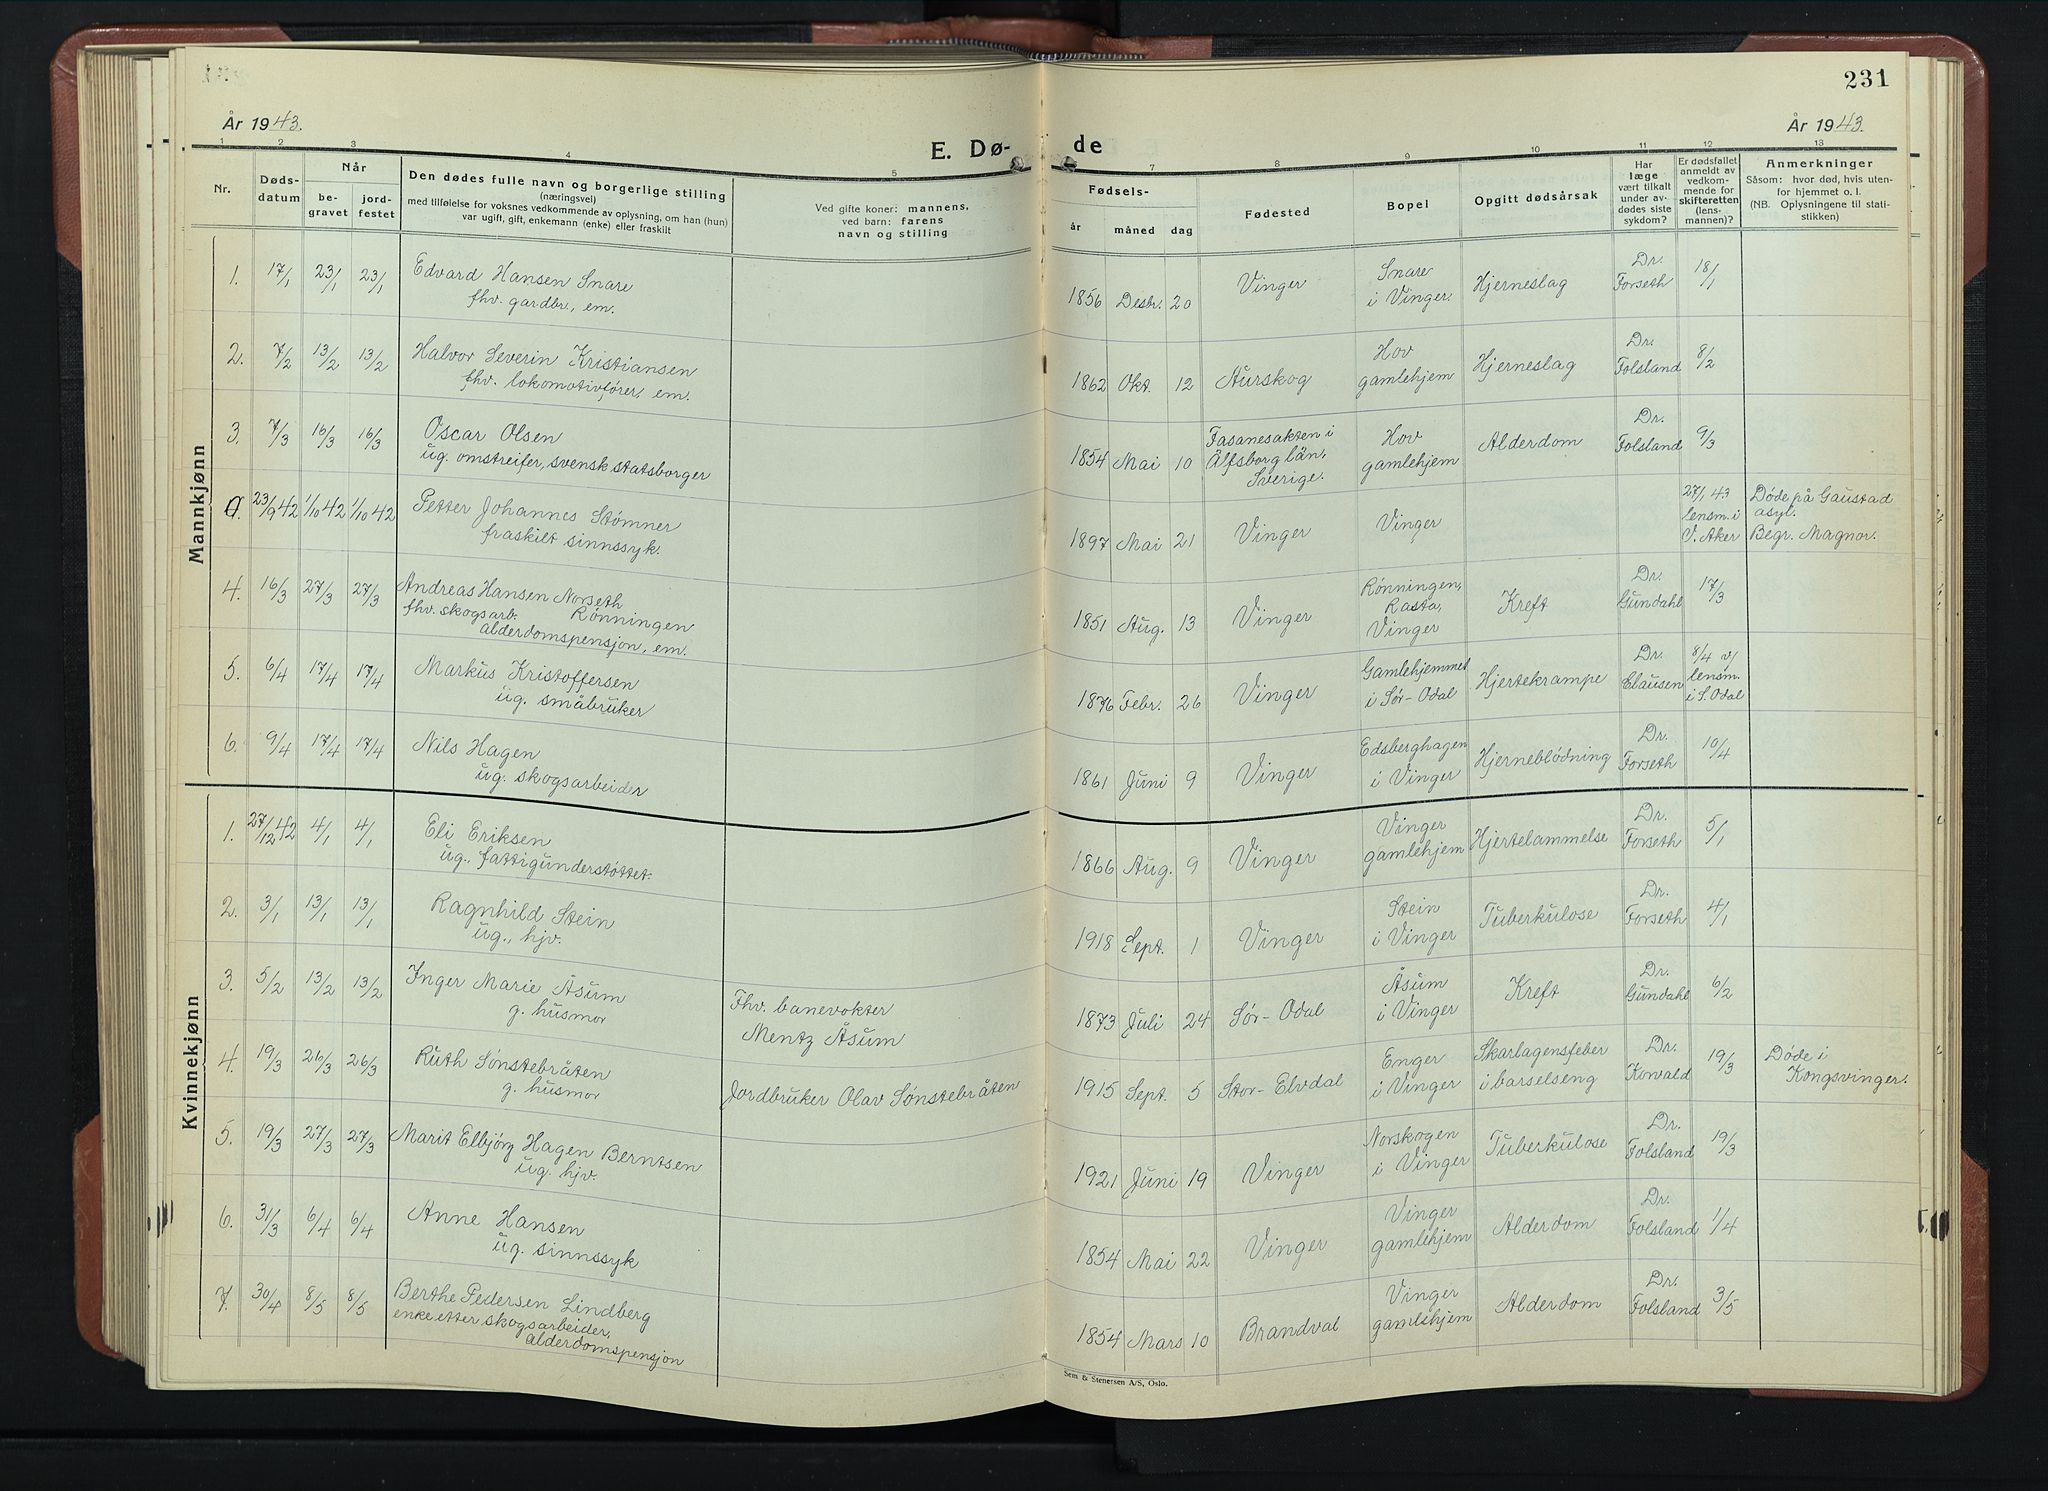 231
År 1943.
År 1943.
E. Dø-
de
1 2 3 4 5 7 8 9 10 11 12 13
Nr.
Døds-
datum
Når
be-
gravet
jord-
festet
Den dødes fulle navn og borgerlige stilling
(næringsvei)
med tilføielse for voksnes vedkommende av oplysning, om han (hun)
var ugift, gift, enkemann (enke) eller fraskilt
Ved gifte koner: mannens,
ved barn: farens
navn og stilling
Fødsels-
år måned dag
Fødested
Bopel
Opgitt dødsårsak
Har
læge
vært tilkalt
under av-
dødes siste
sykdom?
Er dødsfallet
anmeldt av
vedkom-
mende for
skifteretten
(lens-
mannen)?
Anmerkninger
Såsom: hvor død, hvis uten-
for hjemmet o. l.
(NB. Oplysningene til stati-
stikken)
Mannkjønn
1. 17/1 23/1 23/1 Edvard Hansen Snare
fhv. gardbr., em.
1856 Desbr. 20 Vinger
Snare
i Vinger.
Hjerneslag
Dr.
Forseth
18/1
2. 7/2 13/2 13/2 Halvor Severin Kristiansen
fhv. lokomotivfører, em.
1862 Okt. 12 Aurskog
Hov
gamlehjem
Hjerneslag
Dr.
Folsland
8/2
3. 7/3 16/3 16/3 Oscar Olsen
ug. omstreifer, svensk statsborger
1854 Mai 10
Fasanesakten i
Älfsborg län,
Sverige.
Hov
gamlehjem
Alderdom
Dr.
Folsland
9/3
0. 23/9 42 1/10 42 1/10 42 Petter Johannes Stømner
fraskilt sinnssyk.
1897 Mai 21 Vinger
Vinger
27/1 43
lensm. i
V. Aker
Døde på Gaustad
asyl.
Begr. Magnor.
4. 16/3 27/3 27/3 Andreas Hansen Norseth
fhv. skogsarb. Rønningen
alderdomspensjon, em.
1851 Aug. 13 Vinger
Rønningen,
Rasta,
Vinger
Kreft
Dr.
Gundahl
17/3
5. 6/4 17/4 17/4 Markus Kristoffersen
ug. småbruker
1876 Febr. 26 Vinger
Gamlehjemmet
i Sør-Odal
Hjertekrampe
Dr.
Clausen
8/4 v/
lensm.
i S. Odal
6. 9/4 17/4 17/4 Nils Hagen
ug. skogsarbeider
1861 Juni 9 Vinger
Edsberghagen
i Vinger
Hjerneblödning
Dr.
Forseth
10/4
Kvinnekjønn
1. 27/12 42 4/1 4/1 Eli Eriksen
ug., fattigunderstøttet.
1866 Aug. 9 Vinger
Vinger
gamlehjem
Hjertelammelse
Dr.
Forseth
5/1
2. 3/1 13/1 13/1 Ragnhild Stein
ug., hjv.
1918 Sept. 1 Vinger
Stein
i Vinger
Tuberkulose
Dr.
Forseth
4/1
3. 5/2 13/2 13/2 Inger Marie Åsum
g. husmor
Fhv. banevokter
Mentz Åsum
1873 Juli 24 Sør-Odal
Åsum
i Vinger
Kreft
Dr.
Gundahl
6/2
4. 19/3 26/3 26/3 Ruth Sønstebråten
g. husmor
Jordbruker Olav Sønstebråten
1915 Sept. 5 Stor-Elvdal
Enger
i Vinger
Skarlagensfeber
i barselseng
Dr.
Korvald
19/3
Døde i
Kongsvinger.
5. 19/3 27/3 27/3 Marit Elbjörg Hagen Berntsen
ug. hjv.
1921 Juni 19 Vinger
Norskogen
i Vinger
Tuberkulose
Dr.
Folsland
19/3
6. 31/3 6/4 6/4 Anne Hansen
ug. sinnssyk
1854 Mai 22 Vinger
Vinger
gamlehjem
Alderdom
Dr.
Folsland
1/4
7. 30/4 8/5 8/5 Berthe Pedersen Lindberg
enke etter skogsarbeider,
alderdomspensjon
1854 Mars 10 Brandval
Vinger
gamlehjem
Alderdom
Dr.
Folsland
3/5
Sem & Stenersen A/S, Oslo.